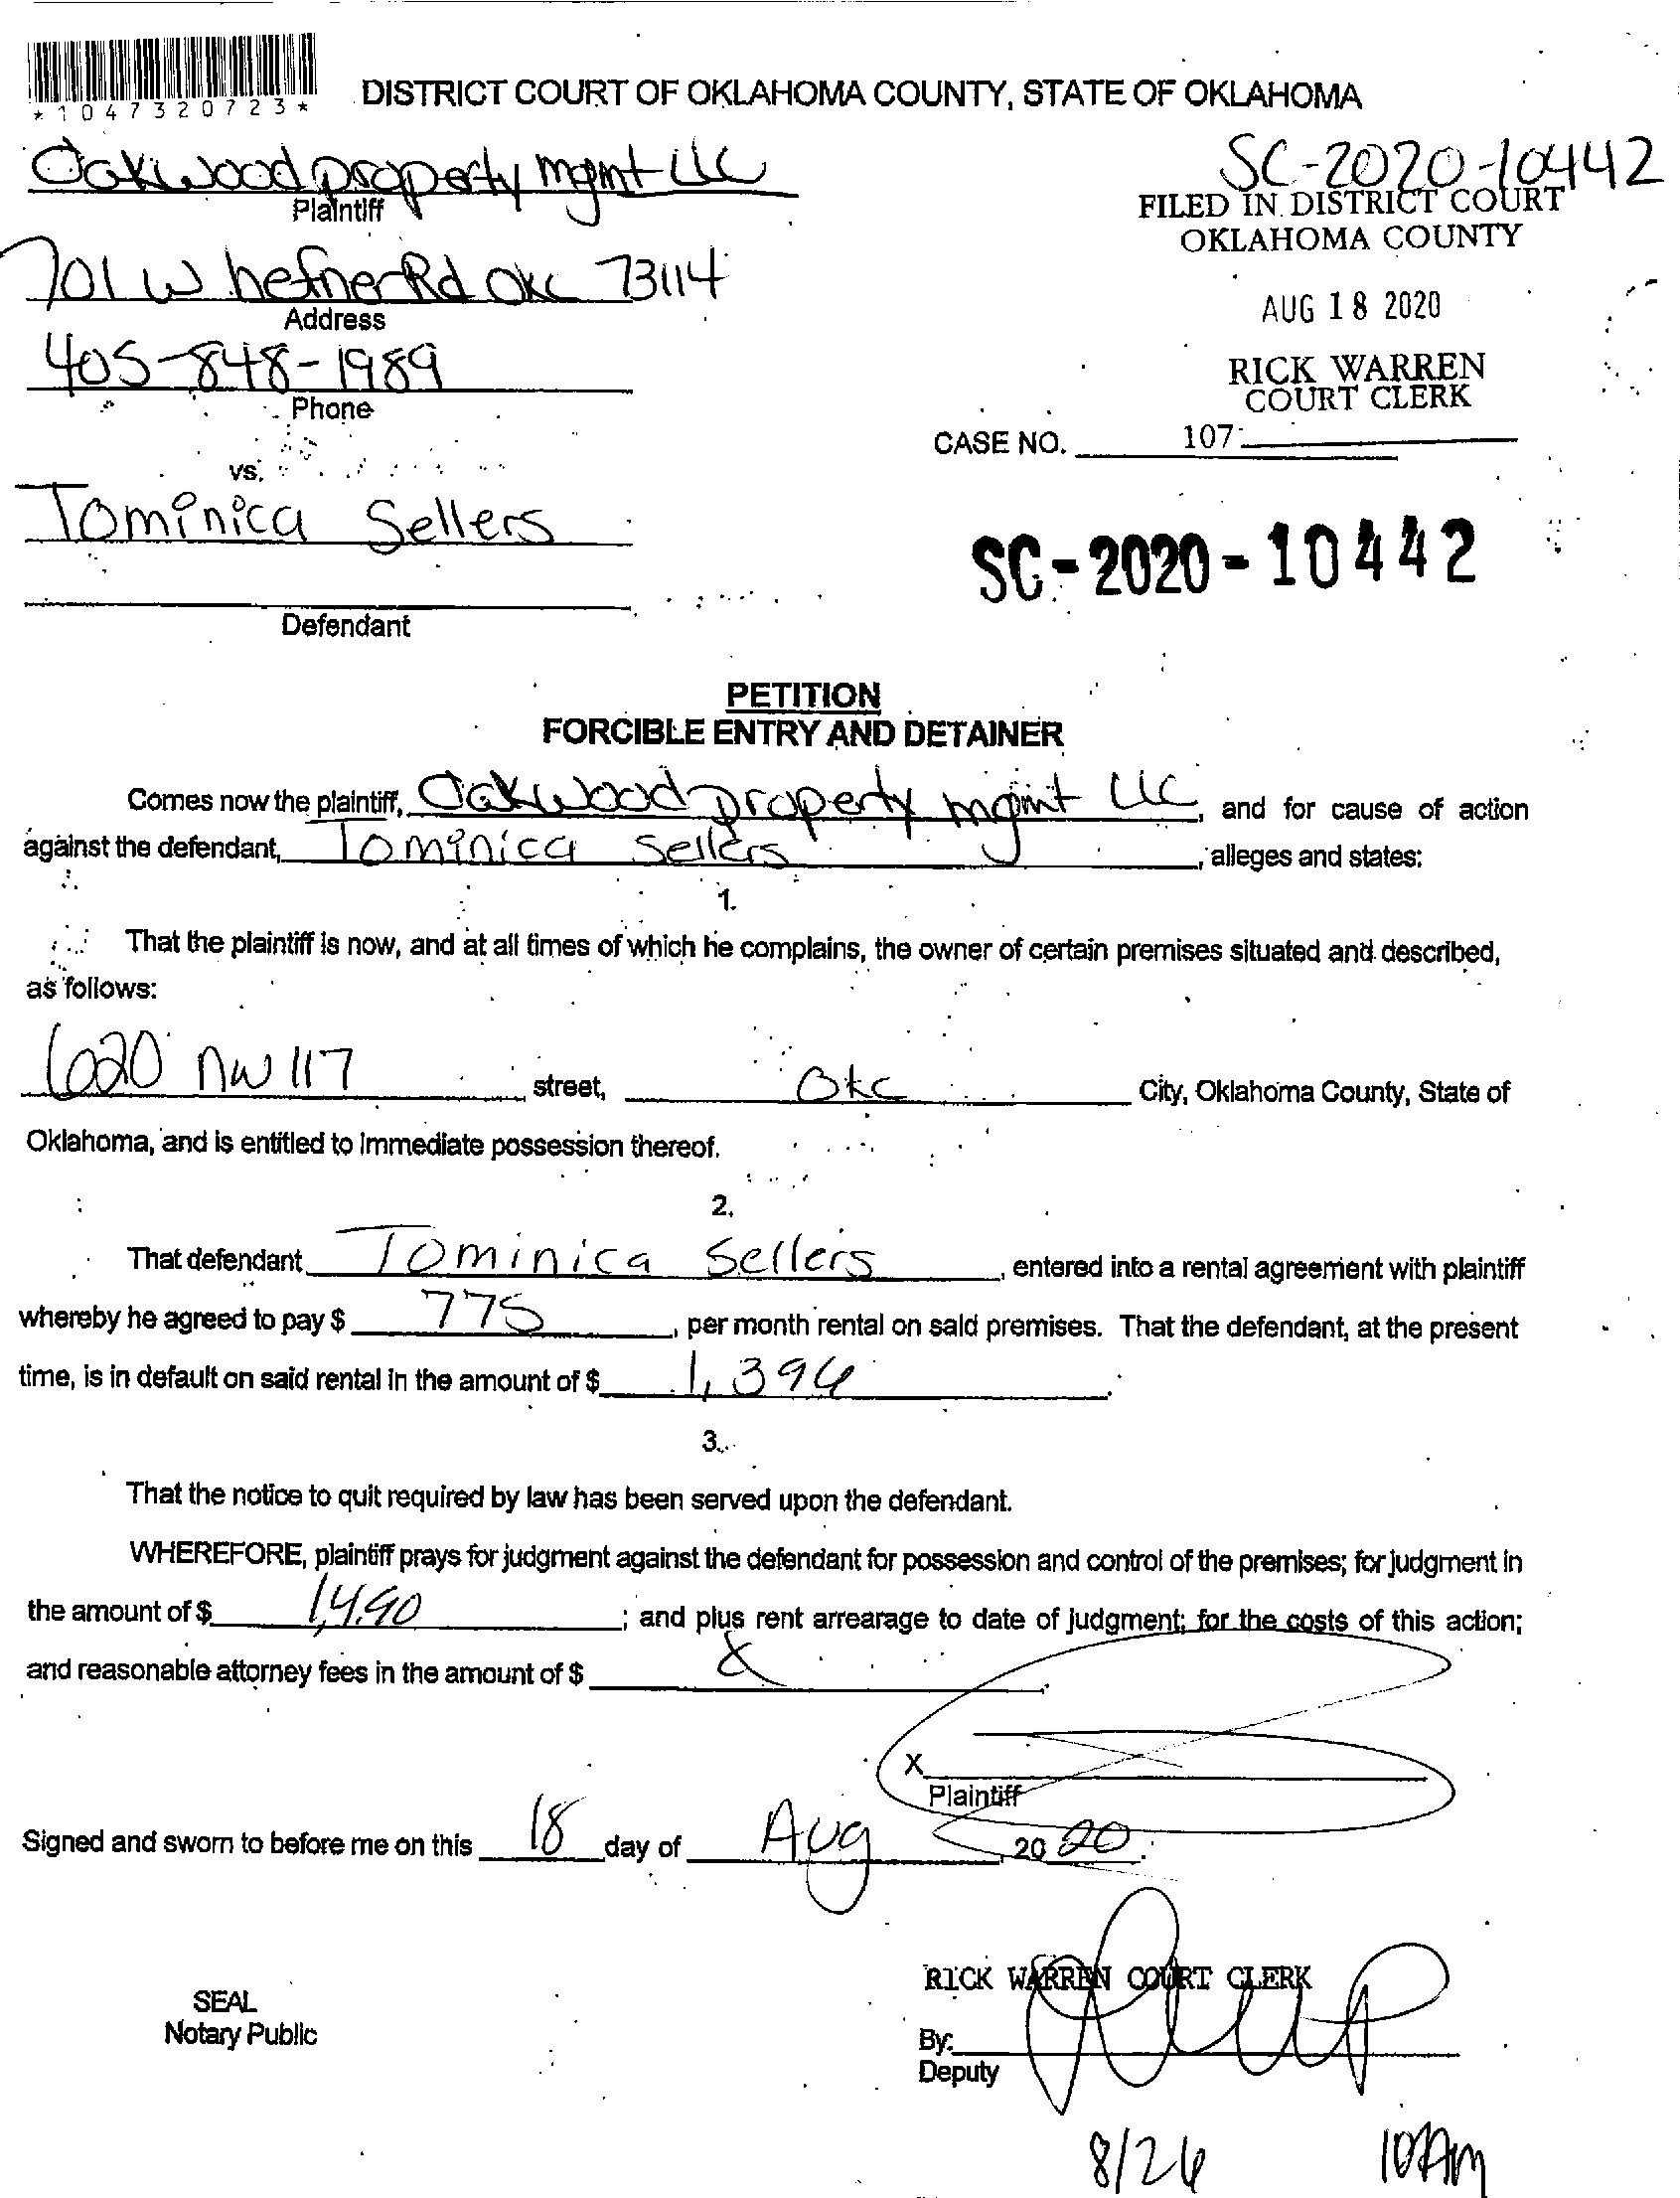 *1047320723*
DISTRICT COURT OF OKLAHOMA COUNTY, STATE OF OKLAHOMA
Oakwood property mgmt LLC
Plaintiff
SC-2020-10442
FILED IN DISTRICT COURT
OKLAHOMA COUNTY
701 W hefner Rd OKC 73114
Address
AUG 18 2020
405-848-1989
Phone
RICK WARREN
COURT CLERK
CASE NO. 107
vs.
Tominica Sellers
SC-2020-10442
Defendant
PETITION
FORCIBLE ENTRY AND DETAINER
Comes now the plaintiff, Oakwood property mgmt LLC, and for cause of action
against the defendant, Tominica Sellers, alleges and states:
1.
That the plaintiff is now, and at all times of which he complains, the owner of certain premises situated and described,
as follows:
620 NW 117 street, OKC City, Oklahoma County, State of
Oklahoma, and is entitled to immediate possession thereof.
2.
That defendant Tominica Sellers, entered into a rental agreement with plaintiff
whereby he agreed to pay $ 775, per month rental on said premises. That the defendant, at the present
time, is in default on said rental in the amount of $ 1,396.
3.
That the notice to quit required by law has been served upon the defendant.
WHEREFORE, plaintiff prays for judgment against the defendant for possession and control of the premises; for judgment in
the amount of $ 1,490; and plus rent arrearage to date of judgment; for the costs of this action;
and reasonable attorney fees in the amount of $
X
Plaintiff
Signed and sworn to before me on this 18 day of Aug, 2020.
RICK WARREN COURT CLERK
SEAL
Notary Public
By:
Deputy
8/26 10AM